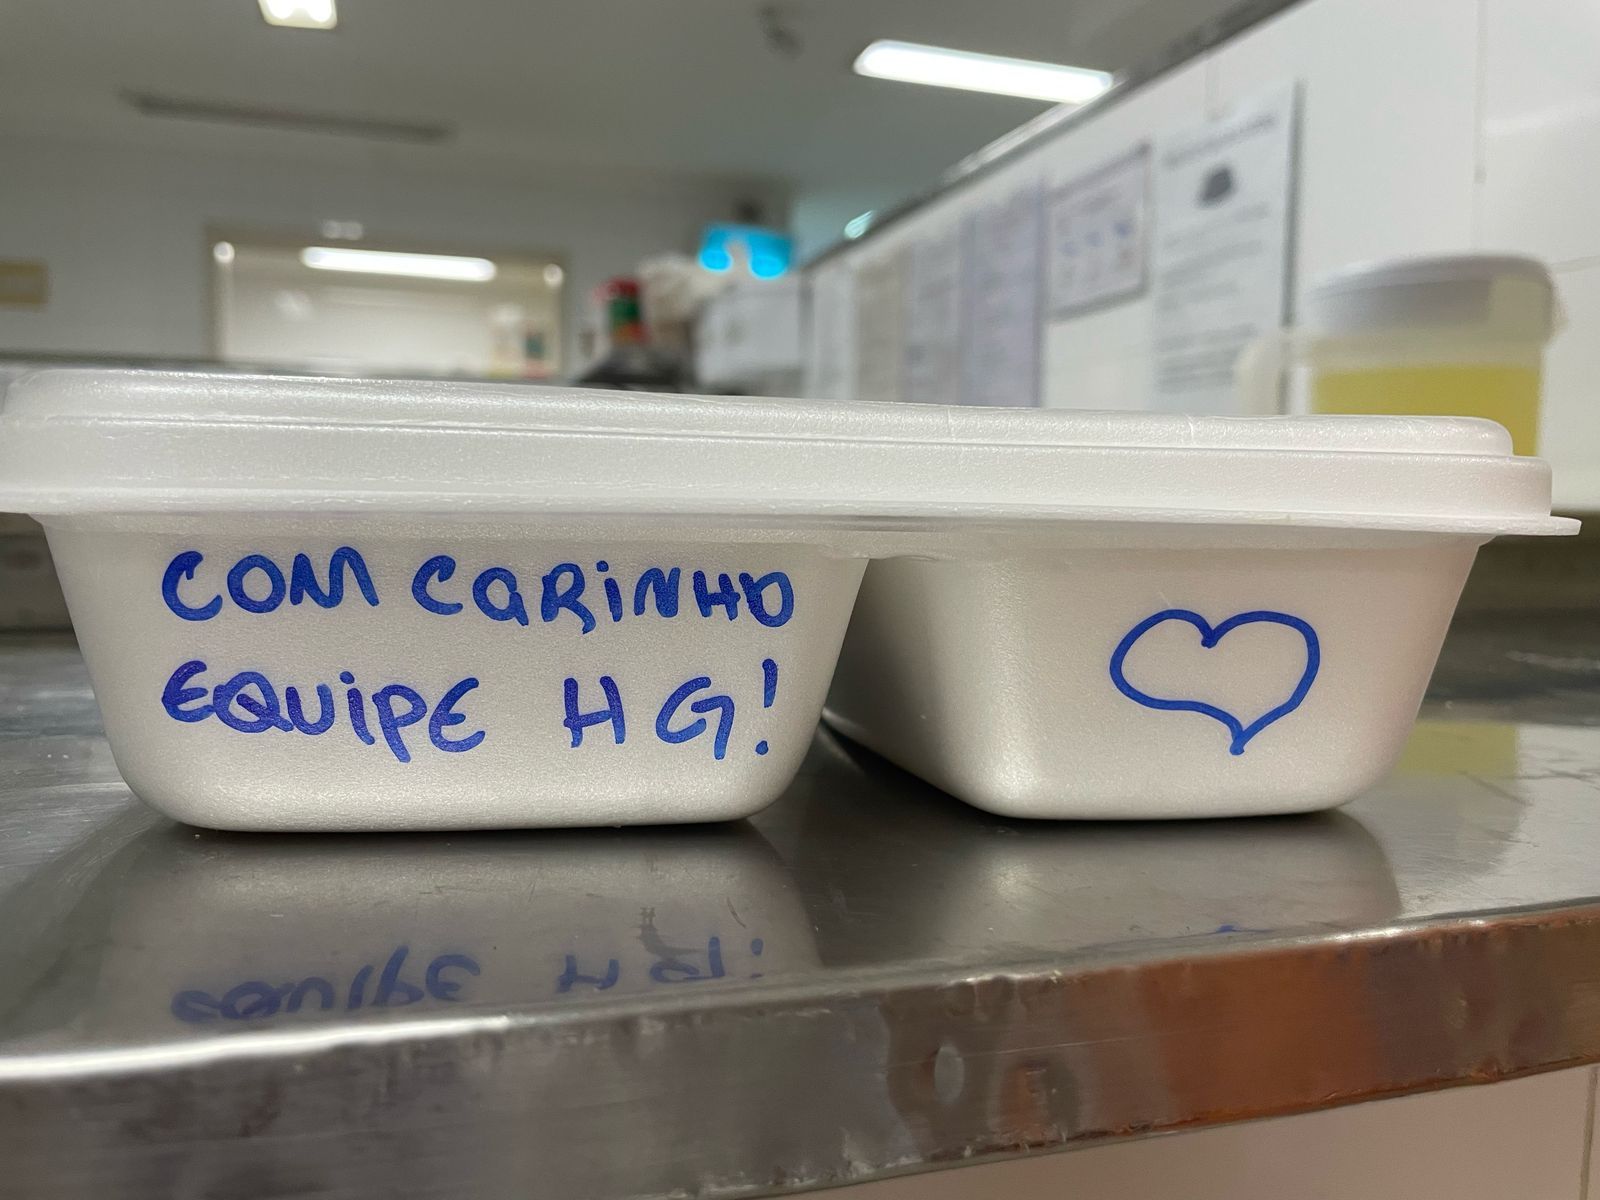 COM CARINHO
EQUIPE HG!